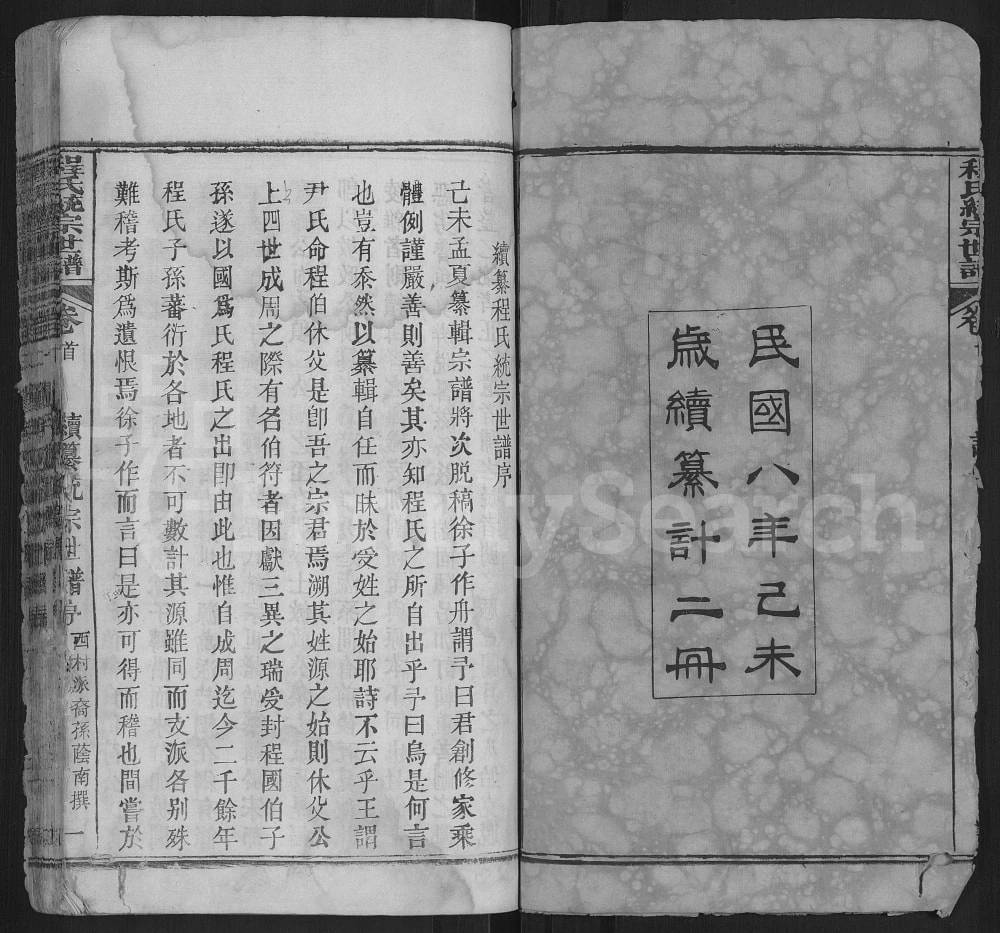 程氏統宗世譜
民國八年己未
歲續纂計二冊
續纂程氏統宗世譜序
己未孟夏纂輯宗譜將次脱稿徐子作舟謂予曰君創修家乘
體例謹嚴善則善矣其亦知程氏之所自出乎予曰烏是何言
也豈有忝然以纂輯自任而昧於受姓之始耶詩不云乎王謂
尹氏命程伯休父是卽吾之宗君焉溯其姓源之始則休父公
上四世成周之際有名伯符者因獻三異之瑞受封程國伯子
孫遂以國爲氏程氏之出卽由此也惟自成周迄今二千餘年
程氏子孫蕃衍於各地者不可數計其源雖同而支派各別殊
難稽考斯爲遺恨焉徐子作而言曰是亦可得而稽也間嘗於
程氏統宗世譜
卷首
續纂統宗世譜序
西村派裔孫蔭南撰
一
FamilySearch